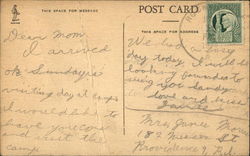 THIS SPACE FOR MESSAGE
POST CARD
THIS SPACE FOR ADDRESS
Dear Mom.
I arrived
ok Sunday is
visiting day at camp
I would like to
have you come
and visit the
camp
We had a busy
day today. I will be
looking forward to
seeing you Sunday
love and kisses
Mrs. Janie
182
Providence 9, R.I.